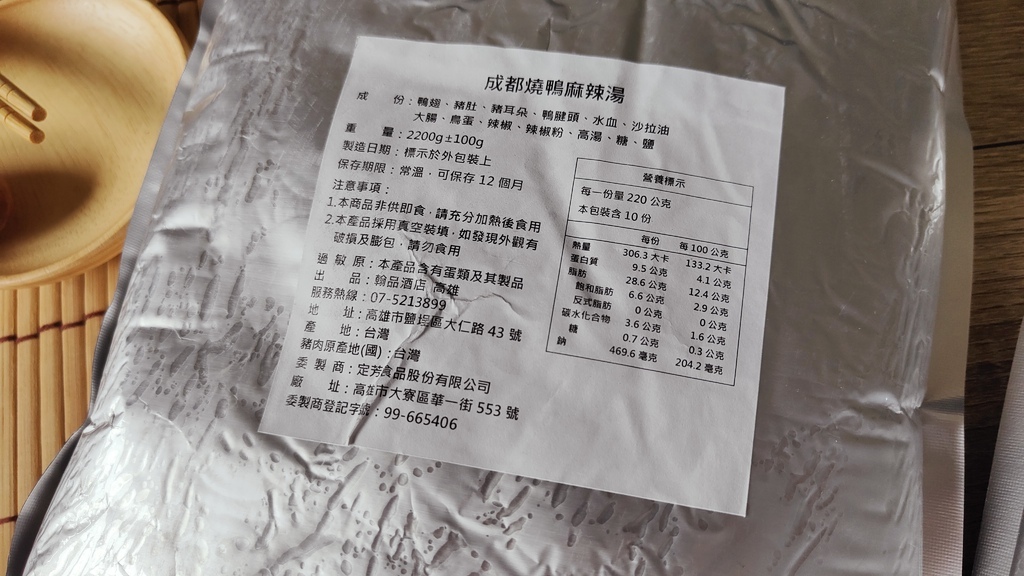 成都燒鴨麻辣湯
成　份：鴨翅、豬肚、豬耳朵、鴨腱頭、水血、沙拉油
大腸、鳥蛋、辣椒、辣椒粉、高湯、糖、鹽
重　量：2200g±100g
製造日期：標示於外包裝上
保存期限：常溫，可保存 12 個月
注意事項：
1.本商品非供即食，請充分加熱後食用
2.本產品採用真空裝填，如發現外觀有
破損及膨包，請勿食用
過 敏 原：本產品含有蛋類及其製品
出　品：翰品酒店 高雄
服務熱線：07-5213899
地　址：高雄市鹽埕區大仁路 43 號
產　地：台灣
豬肉原產地(國)：台灣
委 製 商：定芳食品股份有限公司
廠　址：高雄市大寮區華一街 553 號
委製商登記字號：99-665406
營養標示
每一份量 220 公克
本包裝含 10 份
每份　每 100 公克
熱量　306.3 大卡　133.2 大卡
蛋白質　9.5 公克　4.1 公克
脂肪　28.6 公克　12.4 公克
飽和脂肪　6.6 公克　2.9 公克
反式脂肪　0 公克　0 公克
碳水化合物　3.6 公克　1.6 公克
糖　0.7 公克　0.3 公克
鈉　469.6 毫克　204.2 毫克